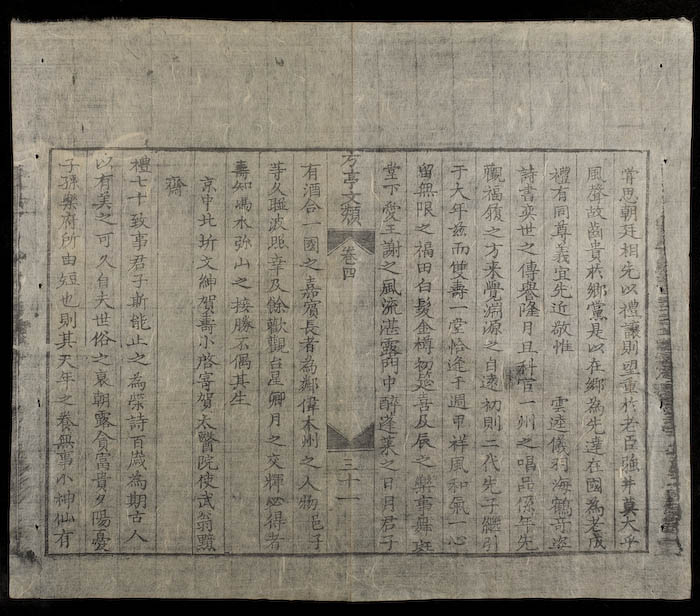 嘗思朝廷相先以禮讓則望重於老臣強井莫大乎
風聲故齒貴扵鄉黨是以在鄉為先達在國為老成
禮有同尊義宜先近敬惟 雲達儀羽海鶴奇姿
詩書奕世之傳譽隆月旦科官一州之唱品係年先
觀福嶺之方來覺淵源之自遠初則二代先子繼引
于大年玆而雙壽一堂恰逢于週甲祥風和氣一心
留無限之福田白髮金樽初筵喜及辰之樂事舞斑
堂下愛王謝之風流湛露門中醉蓬萊之日月君子
有酒合一國之嘉賓長者為鄉偉本州之人物 子
等久 波 幸及餘歡觀台星卿月之交輝必得者
壽知馮水弥山之接勝不偶其生
京中北圻文紳賀壽小啓寄賀太醫院使武翁顯
齋
禮七十致事君子斯能止之為榮詩百歲為期古人
以有美之可久自夫世俗之哀朝露貪富貴夕陽憂
子孫樂府所由短也則其天年之養無事小神仙有
方亭文類
卷四
三十一